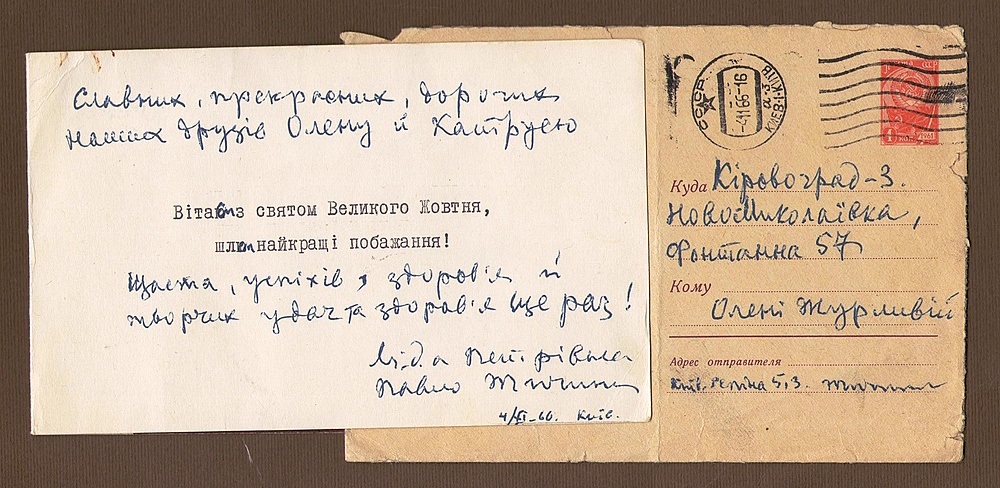 Славних, прекрасних, дорогих
наших друзів Олену й Катрусю
Вітаєм з святом Великого Жовтня,
шлем найкращі побажання!
Щастя, успіхів, здоров'я й
творчих удач та здоров'я ще раз!
Лідa Петрівна
Павло Тичина
4/XI-66. Київ.
СССР
-4.11.66-16
КИЕВ·КИЇВ
1961
Куда Кіровоград-3.
НовоМиколаївка,
Фонтанна 57
Кому
Олені Журливій
Адрес отправителя
Київ. Рєпіна 5, 3. Тичина